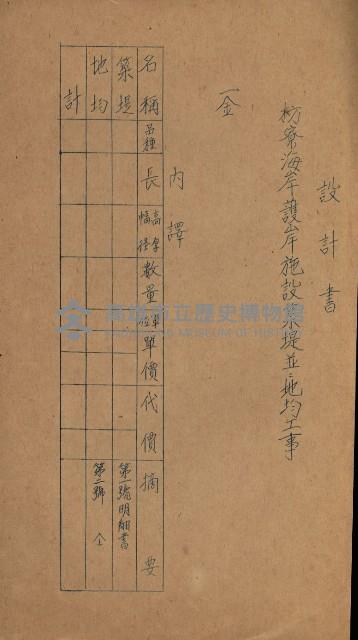 設計書
枋寮海岸護岸施設築堤並ニ地均工事
一金
內譯
名稱 品種 長 高厚 幅徑 數量 單位 單價 代價 摘要
築堤 第一號明細書
地均 第二號 仝
計
高雄市立歷史博物館
KAOHSIUNG MUSEUM OF HISTORY